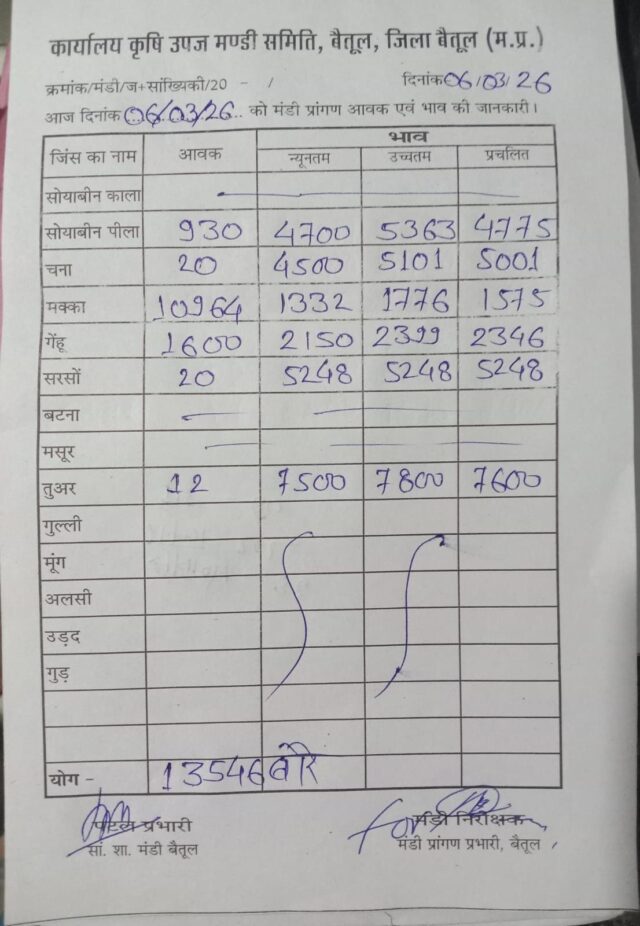 कार्यालय कृषि उपज मण्डी समिति, बैतूल, जिला बैतूल (म.प्र.)
क्रमांक/मंडी/ज+सांख्यिकी/20 - / दिनांक 06/03/26
आज दिनांक 06/03/26.. को मंडी प्रांगण आवक एवं भाव की जानकारी।
जिंस का नाम आवक भाव
न्यूनतम उच्चतम प्रचलित
सोयाबीन काला —
सोयाबीन पीला 930 4700 5363 4775
चना 20 4500 5101 5001
मक्का 10964 1332 1776 1575
गेंहू 1600 2150 2399 2346
सरसों 20 5248 5248 5248
बटना — —
मसूर — —
तुअर 12 7500 7800 7600
गुल्ली
मूंग
अलसी
उड़द
गुड़
योग - 13546 बोरे
प्रभारी मंडी निरीक्षक
सां. शा. मंडी बैतूल मंडी प्रांगण प्रभारी, बैतूल
for